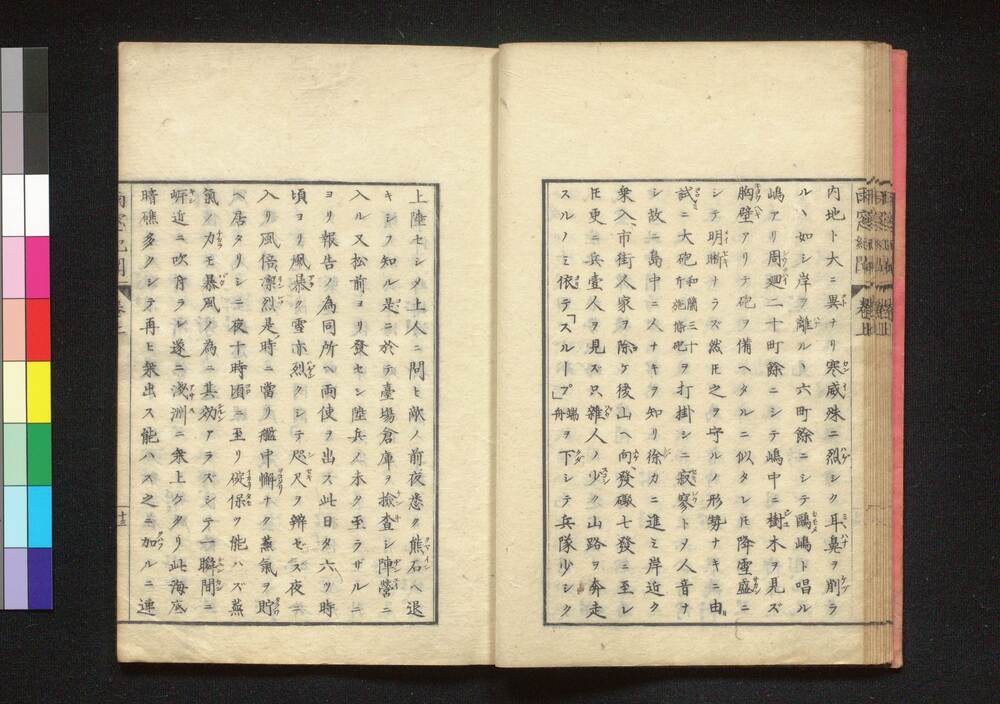 内地ト大ニ異ナリ寒威殊ニ烈シク耳鼻ヲ削ラ
ルヽ如シ岸ヲ離ルヽ六町餘ニシテ鷗嶋ト唱ル
嶋アリ周廻二十町餘ニシテ嶋中ニ樹木ヲ見ズ
胸壁アリテ砲ヲ備ヘタルニ似タレ𪜈降雪盛ニ
シテ明晰ナラズ然𪜈之ヲ守ルノ形勢ナキニ由
試ニ大砲和蘭三十斤施條砲ヲ打掛シニ寂寥トメ人音ナ
シ故ニ島中ニ人ナキヲ知リ徐カニ進ミ岸近ク
乗入市街人家ヲ除ケ後山ヘ向發礮七發ニ至レ
𪜈更ニ兵壹人ヲ見ス只雜人ノ少ク山路ヲ奔走
スルノミ依テ「スループ」端舟ヲ下シテ兵隊少シク
上陸セシメ土人ニ問ヒ敵ノ前夜悉ク熊石ヘ退
キシヲ知ル是ニ於テ臺場倉庫ヲ撿査シ陣營ニ
入ル又松前ヨリ發セシ陸兵ノ未タ至ラザルニ
ヨリ報告ノ為同所ヘ両使ヲ出ス此日夕六ツ時
頃ヨリ風暴ク雪亦烈クシテ咫尺ヲ辨セス夜ニ
入リ風倍凛烈是時ニ當リ艦中懈ナク蒸氣ヲ貯
ヘ居タリシニ夜十時頃ニ至リ碇保ツ能ハズ蒸
氣ノカモ暴風ノ為ニ其効アラズシテ一瞬間ニ
岍近ニ吹舟ラレ遂ニ浅洲ニ乗上ケタリ此海底
暗礁多クシテ再ヒ乗出ス能ハス之ニ加ルニ連